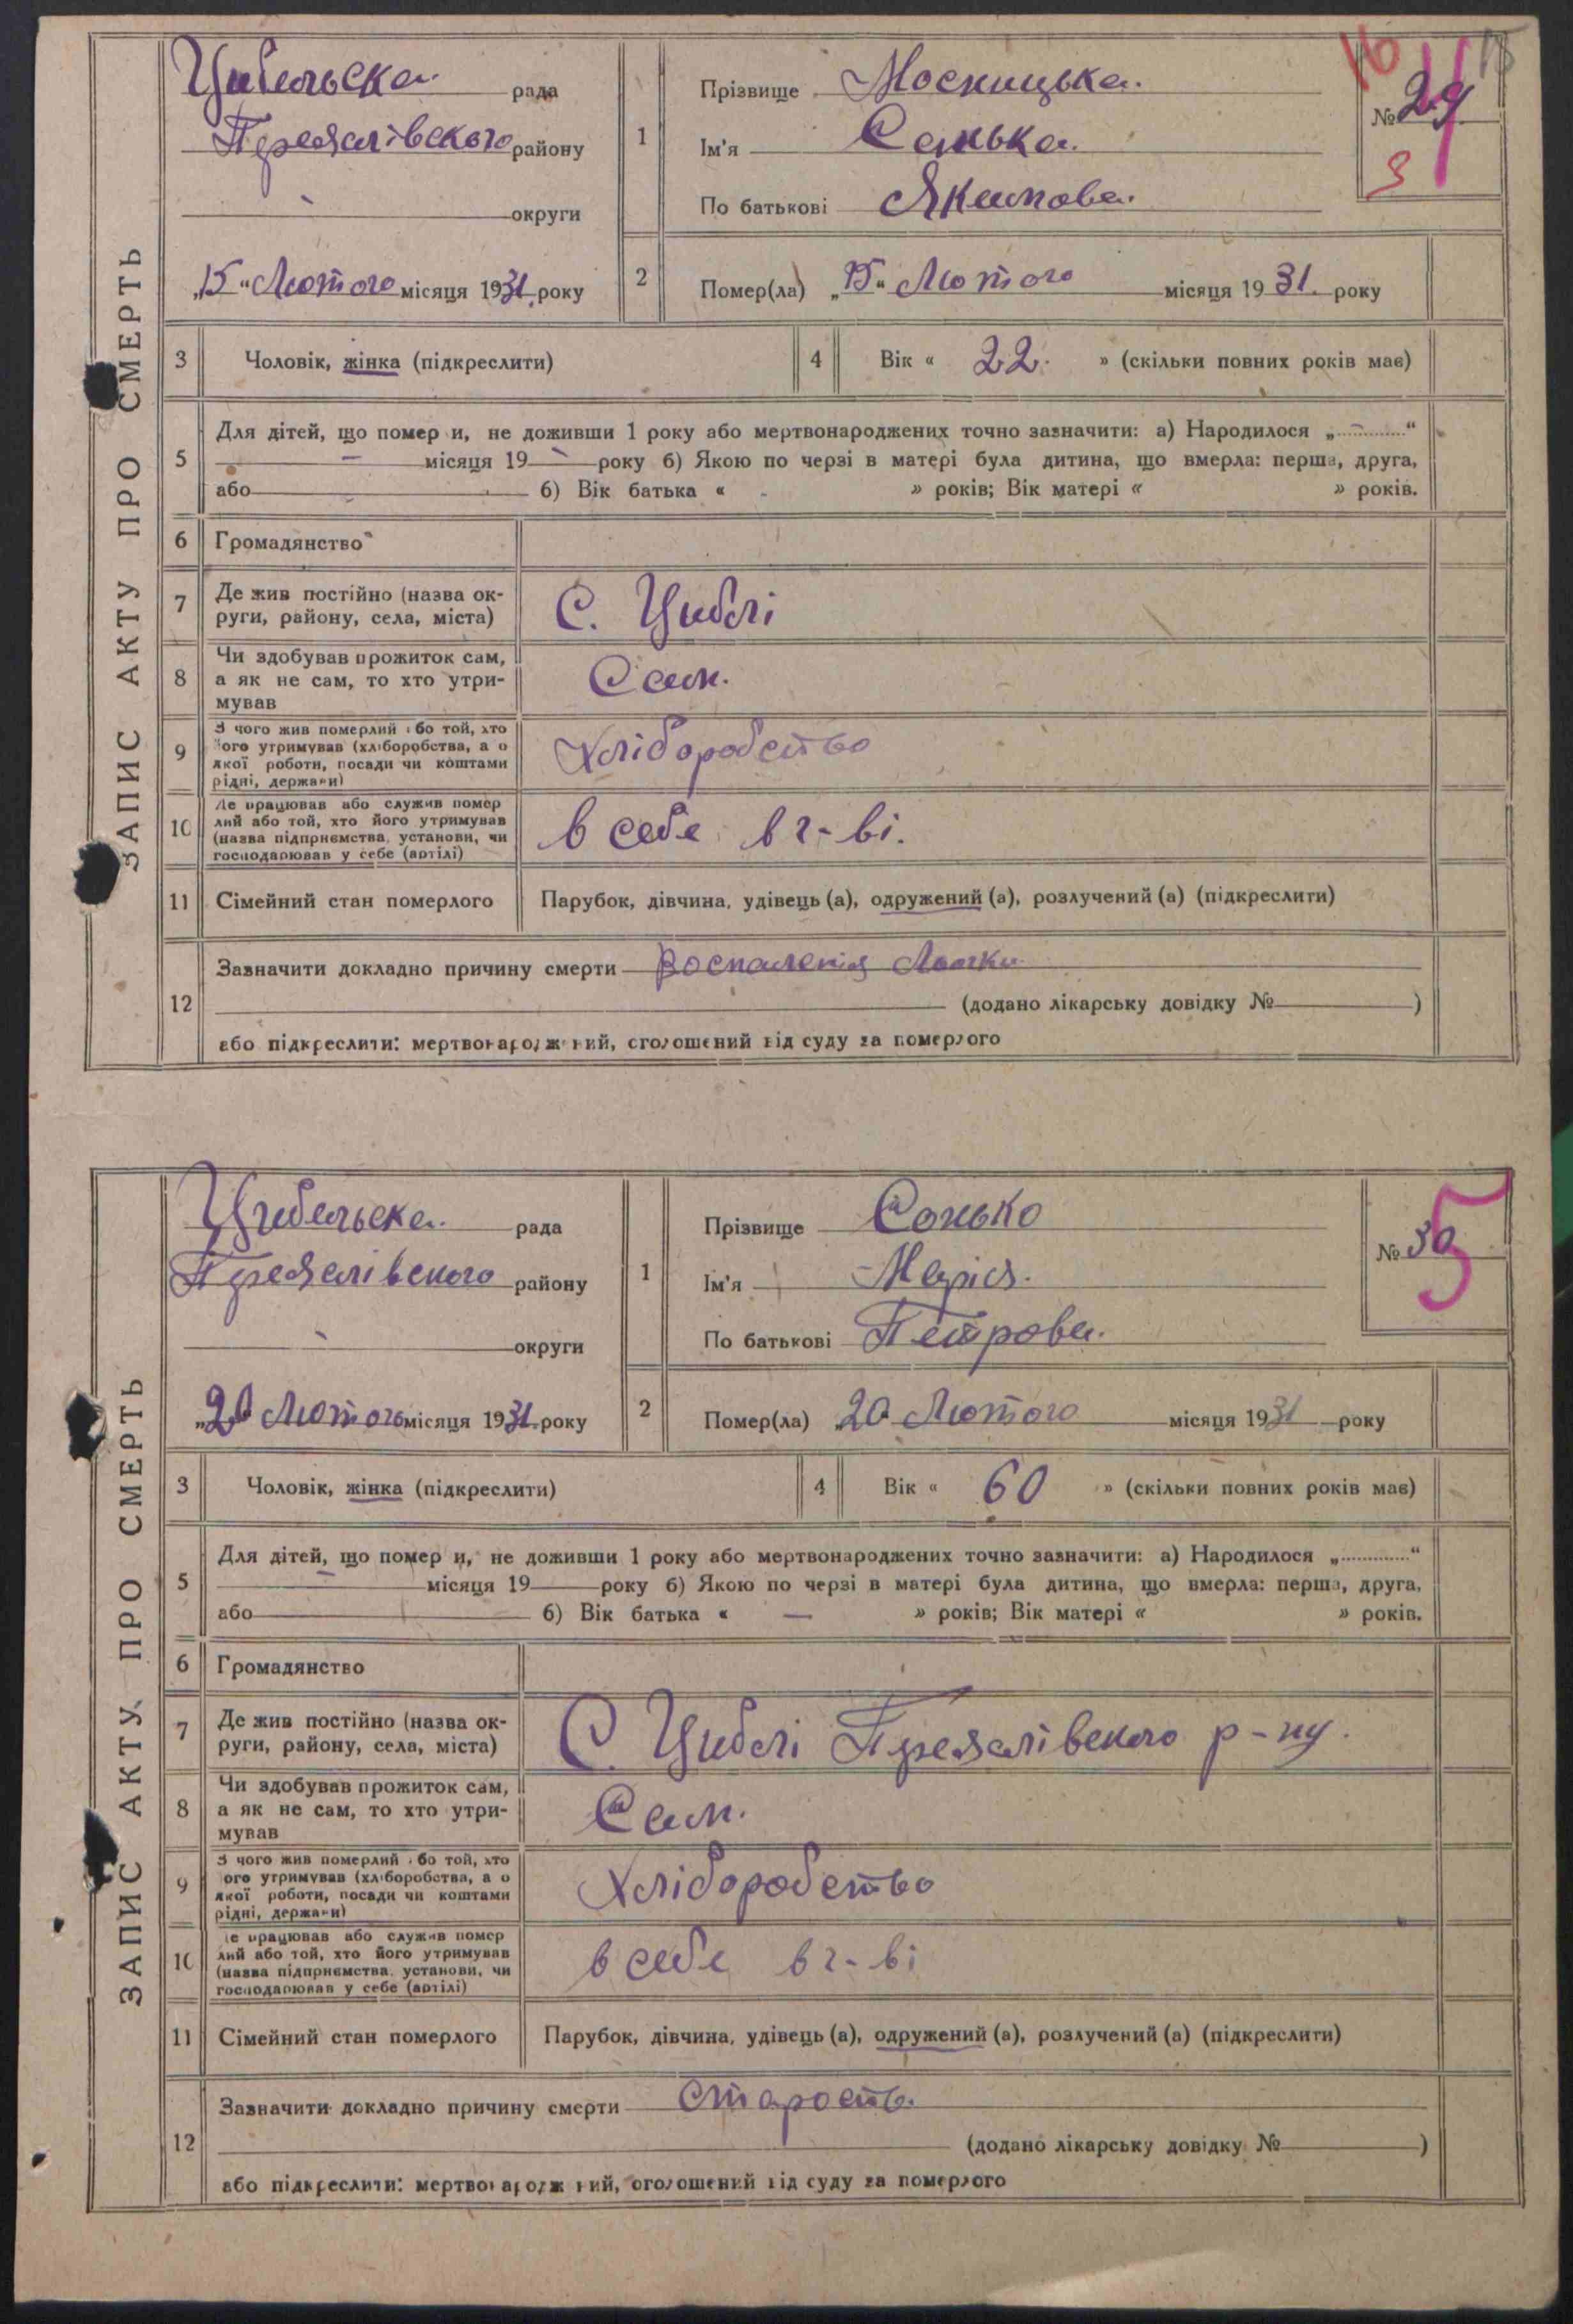 ЗАПИС АКТУ ПРО СМЕРТЬ
Цибельська рада
Переяслівського району
округи
„15“ Лютого місяця 1931 року
1
Прізвище
Ім'я Санька
По батькові Якимова
№ 29
2
Помер(ла) „15“ Лютого місяця 1931. року
3 Чоловік, жінка (підкреслити)
4 Вік « 22 » (скільки повних років має)
5 Для дітей, що помер и, не доживши 1 року або мертвонароджених точно зазначити: а) Народилося „ “
місяця 19 року б) Якою по черзі в матері була дитина, що вмерла: перша, друга,
або б) Вік батька « » років; Вік матері « » років.
6 Громадянство
7 Де жив постійно (назва ок-
руги, району, села, міста)
С. Циблі
8 Чи здобував прожиток сам,
а як не сам, то хто утри-
мував
Сам.
9 З чого жив померлий або той, хто
його утримував (хліборобства, а о
якої роботи, посади чи коштами
рідні, держави)
Хліборобство
10 Де працював або служив помер
лий або той, хто його утримував
(назва підприємства, установи, чи
господарював у себе (артілі)
в себе в г-ві.
11 Сімейний стан померлого Парубок, дівчина, удівець (а), одружений (а), розлучений (а) (підкреслити)
12 Зазначити докладно причину смерти Воспаленія
(додано лікарську довідку № )
або підкреслити: мертвонароджений, оголошений від суду за померлого
ЗАПИС АКТУ ПРО СМЕРТЬ
Цибельська рада
Переяслівського району
округи
„20“ Лютого місяця 1931. року
1
Прізвище Сонько
Ім'я Марія.
По батькові Петрова.
№ 30
5
2
Помер(ла) „20 Лютого місяця 1931 року
3 Чоловік, жінка (підкреслити)
4 Вік « 60 » (скільки повних років має)
5 Для дітей, що помер и, не доживши 1 року або мертвонароджених точно зазначити: а) Народилося „ “
місяця 19 року б) Якою по черзі в матері була дитина, що вмерла: перша, друга,
або б) Вік батька « — » років; Вік матері « » років.
6 Громадянство
7 Де жив постійно (назва ок-
руги, району, села, міста)
С. Циблі Переяслівського р-ну.
8 Чи здобував прожиток сам,
а як не сам, то хто утри-
мував
Сам.
9 З чого жив померлий або той, хто
ого утримував (хліборобства, а о
якої роботи, посади чи коштами
рідні, держави)
Хліборобство
10 Де працював або служив помер
лий або той, хто його утримував
(назва підприємства, установи, чи
господарював у себе (артілі)
в себе в г-ві
11 Сімейний стан померлого Парубок, дівчина, удівець (а), одружений (а), розлучений (а) (підкреслити)
12 Зазначити докладно причину смерти старость.
(додано лікарську довідку № )
або підкреслити: мертвонароджений, оголошений від суду за померлого